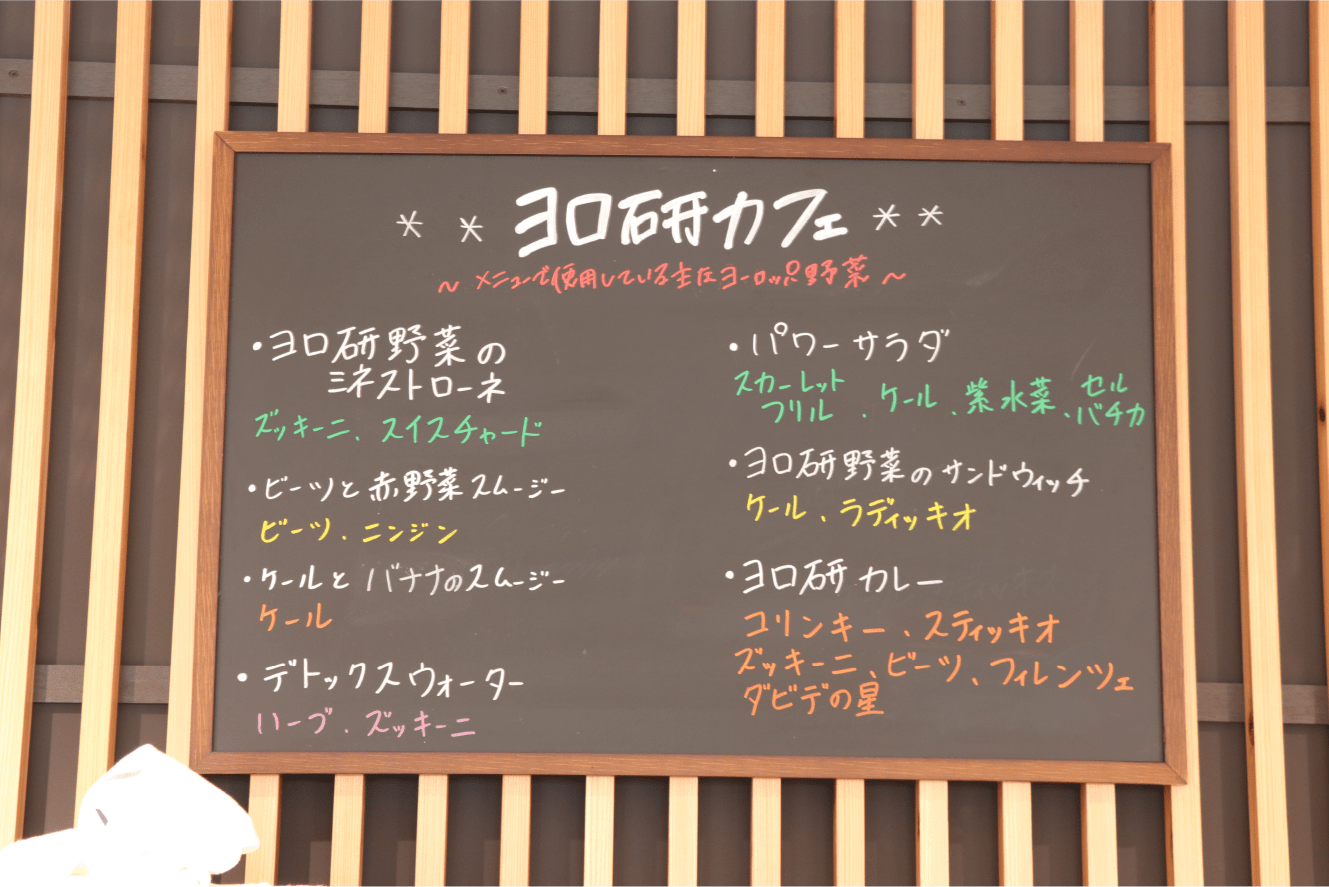 ** ヨロ研カフェ **
～ メニューで使用している主なヨーロッパ野菜 ～
・ヨロ研野菜の
ミネストローネ
ズッキーニ、スイスチャード
・ビーツと赤野菜スムージー
ビーツ、ニンジン
・ケールとバナナのスムージー
ケール
・デトックスウォーター
ハーブ、ズッキーニ
・パワーサラダ
スカーレット
フリル、ケール、紫水菜、セル
バチカ
・ヨロ研野菜のサンドウィッチ
ケール、ラディッキオ
・ヨロ研カレー
コリンキー、スティッキオ
ズッキーニ、ビーツ、フィレンツェ
ダビデの星